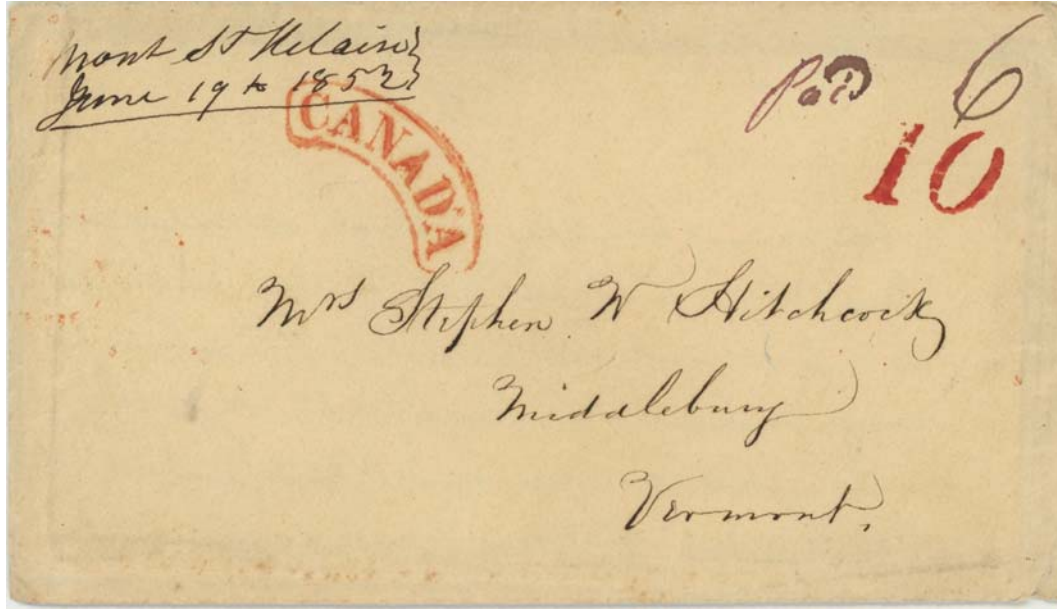 Mont St Helair
June 19 th 1852
Paid 6
CANADA
10
Mrs Stephen W Hitchcock
Middlebury
Vermont.